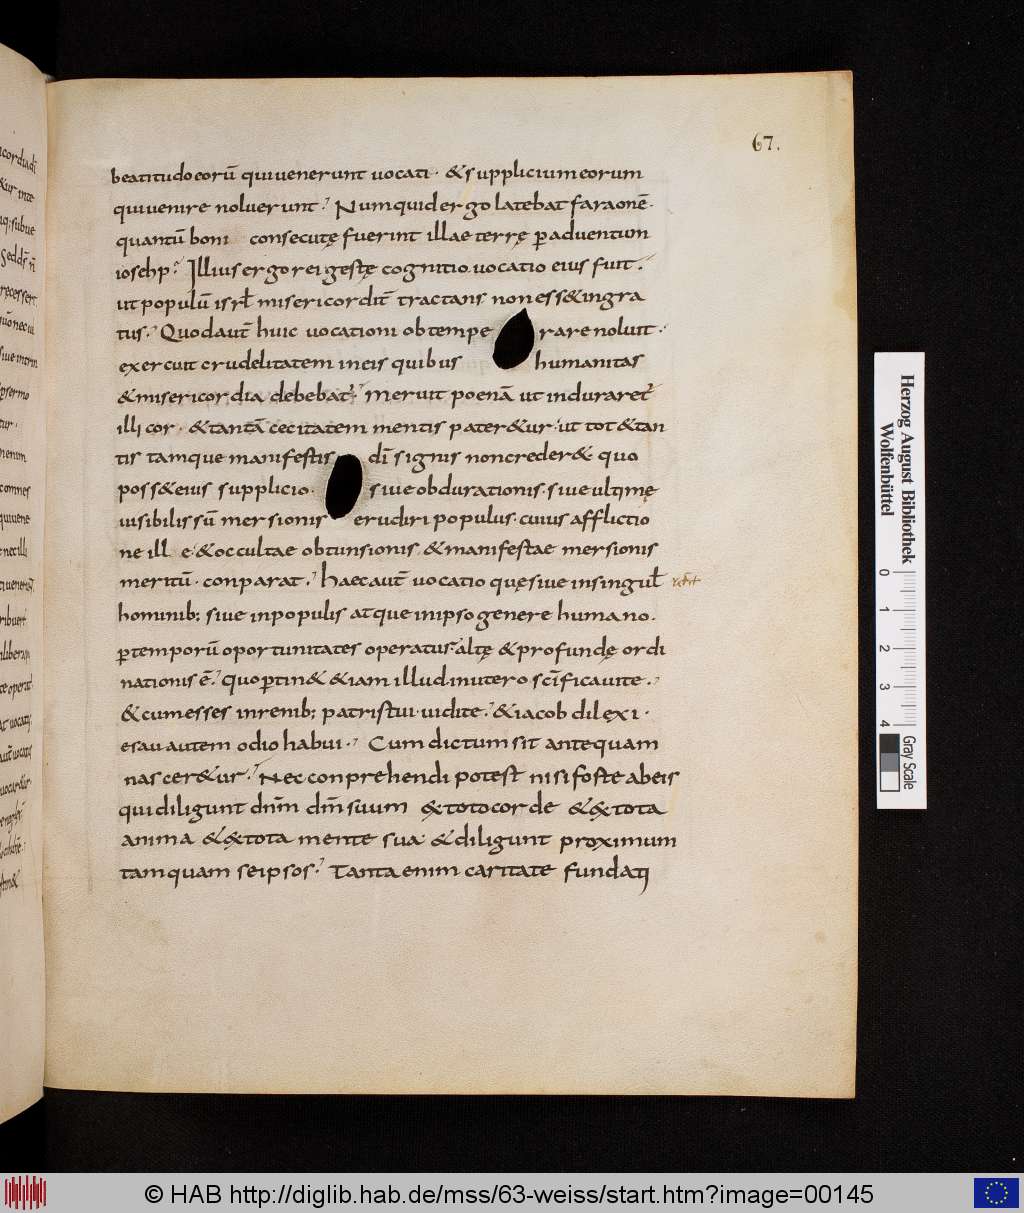 67.
beatitudo eorū qui uenerunt uocati· & supplicium eorum
qui uenire noluerunt? Numquid ergo latebat faraonē·
quantū boni consecutę fuerint illae terrę ꝑ aduentum
iosehp? Illius ergo rei gestę cognitio uocatio eius fuit·
ut populū isrł misericordit̄ tractans non ess& ingra
tus· Quod aut̄ huic uocationi obtempe rare noluit·
exercuit crudelitatem in eis quibus humanitas
& misericordia debebat̄· meruit poenā ut induraret̄
illi cor· & tantā cecitatem mentis pater&ur· ut tot & tan
tis tamque manifestis dī signis non creder& quo
poss& eius supplicio· siue obdurationis· siue ultimę
uisibilis sū mersionis erudiri populus· cuius afflictio
ne ill e· & occultae obtunsionis & manifestae mersionis
meritū· conparat· haec aut̄ uocatio quę siue in singuł
hominib; siue in populis atque in ipso genere humano·
ꝑ temporū oportunitates operatus· altę & profundę ordi
nationis ē· Quo ꝑtin& & iam illud in utero scīficaui te·
& cum esses in renib; patris tui· uidi te· & iacob dilexi·
esau autem odio habui· Cum dictum sit antequam
nascer&ur· Nec conprehendi potest nisi foste ab eis
qui diligunt dnm̄ dm̄ suum & toto corde & & tota
anima & & tota mente sua· & diligunt proximum
tamquam seipsos· Tanta enim caritate fundati
Herzog August Bibliothek
Wolfenbüttel
0 1 2 3 4
Gray Scale
© HAB http://diglib.hab.de/mss/63-weiss/start.htm?image=00145